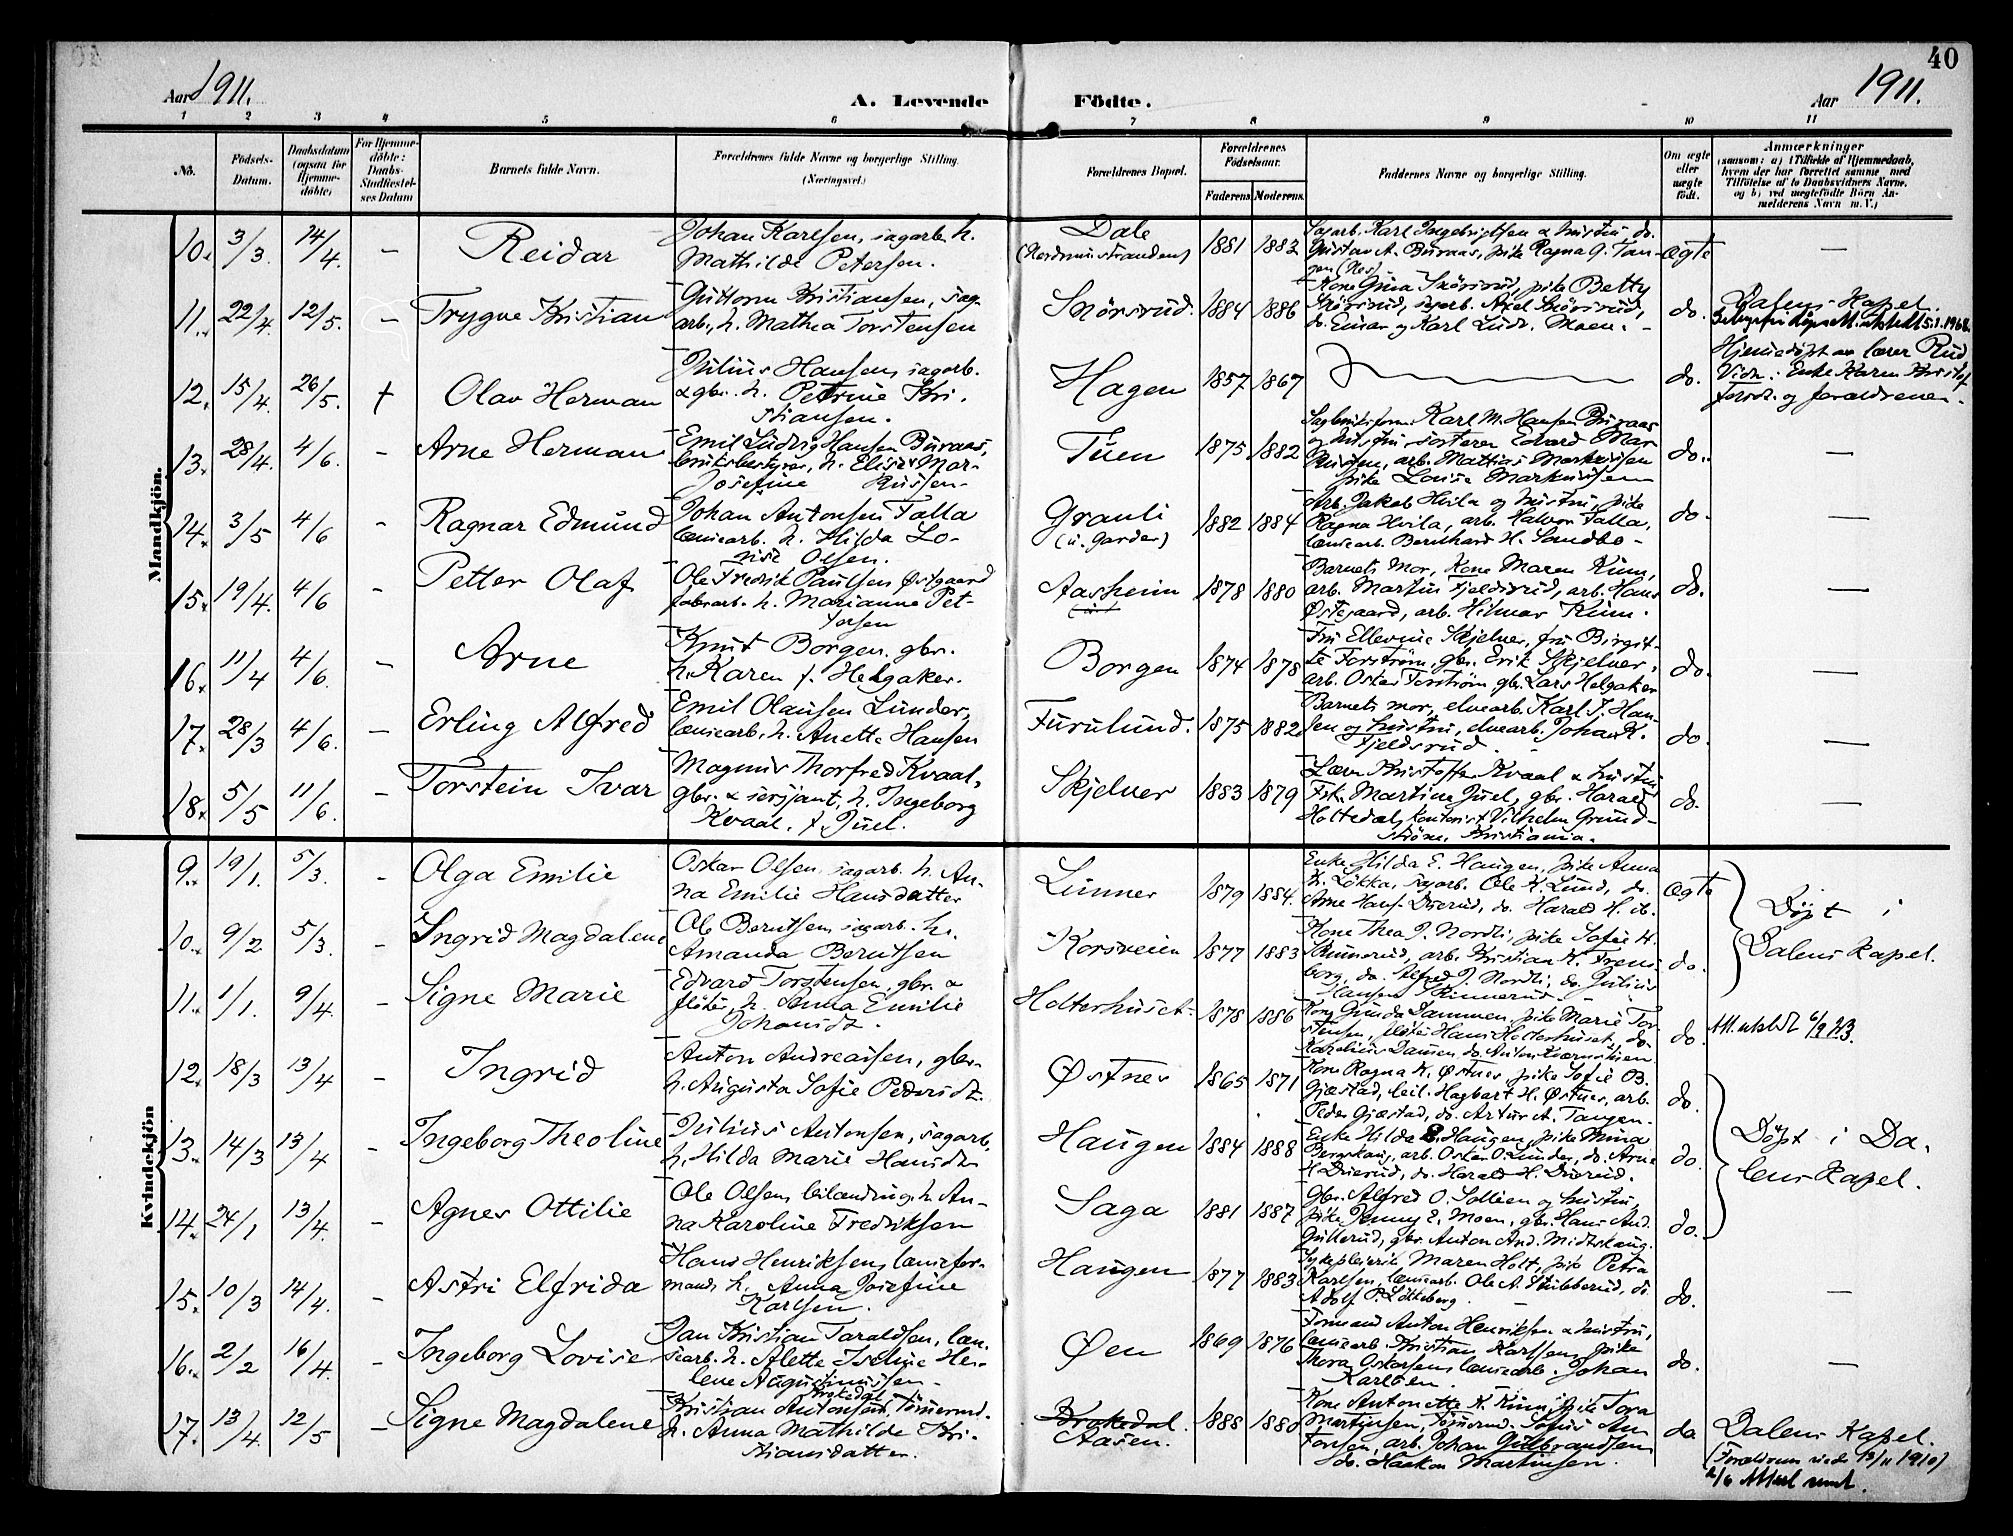 40
Aar 1911.
A. Levende Födte.
Aar 1911.
1 2 3 4 5 6 7 8 9 10 11
No.
Födsels-Datum.
Daabsdatum (ogsaa for Hjemmedöbte)
For Hjemmedöbte: Daabs-Stadfæstelses Datum
Barnets fulde Navn.
Forældrenes fulde Navne og borgerlige Stilling. (Næringsvei.)
Forældrenes Bopæl.
Forældrenes Födselsaar.
Faderens Moderens
Faddernes Navne og borgerlige Stilling.
Om ægte eller uægte födt.
Anmærkninger
(saasom: a) i Tilfælde af Hjemmedaab, hvem der har forrettet samme, med Tilföielse af to Daabsvidners Navne, og b) ved uægtefödte Börn Anmelderens Navn m. V.)
Mandkjön.
10. 3/3. 14/4. – Reidar
Johan Karlsen, sagarb. h.
Mathilde Petersen.
Dale
1881 1883
Sagarb. Karl Ingebrigtsen & hustru do.
Gustav A. Buraas, pike Ragna G. Tangen (Nes)
ægte –
11. 22/4. 12/5. – Trygve Kristian
Guttorm Kristiansen, sagarb., h. Mathea Torstensen
Snörsrud. 1884 1886
Kone Gina Snörsrud, pike Betty
Snörsrud, sagarb. Axel Snörsrud,
do. Einar og Karl Ludv. Moen.
do. Dalens Kapel.
12. 15/4. 26/5. + Olav Herman
Julius Hansen, sagarb.
& gbr. h. Petrine Kristiansen.
Hagen 1857 1867
do.
Hjemedöpt av lærer Rud
Vidn: Enke Karen Kristof
og forældrenen.
13. 28/4. 4/6. – Arne Herman
Emil Ludvig Hansen Buraas,
bruksbestyrer, h. Elise Mar-
Josefine Russen.
Tuen 1875 1882
Karl M. Hansen Buraas
og hustru, Edvard Mar
arb. Mathias Markussen
pike Louise Markussen
do. –
14. 3/5 4/6 – Ragnar Edmund
Johan Antonsen Falla
lænsearb. h. Hilda Lovise Olsen.
Grauli
(u. Garder)
1882 1884
Arb. Jakob Hvila og hustru, pike
Ragna Hvila, arb. Halvor Falla,
lænsearb. Bernhard H. Sandbo
do. –
15. 19/4. 4/6 – Petter Olaf
Ole Fredrik Paulsen Østgaard
h. Marianne Petersen
Aasheim 1878 1880
Barnets Mor, Kone Maren Kinn,
arb. Martin Fjeldsrud, arb. Hans
Østgaard, arb. Hilmar Kinn.
do. –
16. 11/4 4/6. – Arne
Knut Borgen, gbr.
h. Karen f. Helgaker.
Borgen 1874 1878
Fru Ellevine Skjelver, fru Birgit-
te Forström, gbr. Erik Skjelver,
arb. Oskar Forström gbr. Lars Helgaker
do. –
17. 28/3 4/6. – Erling Alfred
Emil Olausen Lunder,
lænsearb. h. Anette Hansen
Furulund. 1875 1882
Barnets mor, elvearb. Karl J. Han-
sen og hustru, elvearb. Johan K.
Fjeldsrud.
do. –
18. 5/5 11/6. – Torstein Ivar
Magnus Thorfred Kvaal,
gbr. & sersjant, h. Ingeborg
Kvaal, f. Juel.
Skjelver 1883 1879
Lærer Kristoffer Kvaal & hustru
Frk. Martine Juel, gbr. Harald
Holtedal, kontorist Vilhelm Grund-
ström, Kristiania.
do. –
Kvindekjön
9. 19/1. 5/3. – Olga Emilie
Oskar Olsen, sagarb. h. An-
na Emilie Hansdatter
Lunner 1879 1884.
Enke Hilda E. Haugen, pike Anna
K. Løkka, sagarb. Ole K. Lund, do.
Arne Hans. Diserud, do. Harald H. ib.
ægte
Döpt i
Dalens Kapel.
10. 9/2 5/3. – Ingrid Magdalene
Ole Berntsen, sagarb. h.
Amanda Berntsen
Korsveien 1877 1883
Kone Thea J. Nordli, pike Sofie H.
Skinnerud, arb. Kristian K. Frens-
borg, do. Alfred J. Nordli, do. Julius
Hansen Skinnerud.
do.
11. 1/1. 9/4. – Signe Marie
Edvard Torstensen, gbr. &
flöter, h. Anna Emilie
Johansdt.
Holterhuset. 1878 1886
Kone Gunda Dammen, pike Marie Tor-
stensen, flöter Hans Holterhuset, do.
Karelius Damen, do. Anton
do. Att. utstedt 6/9 23.
12. 18/3 13/4 – Ingrid
Anton Andreassen, gbr.
h. Augusta Sofie Pedersdt.
Østnes 1865 1871
Kone Ragna K. Østnes, pike Sofie B.
Gjæstad, leil. Hagbart H. Østnes, arb.
Peder Gjæstad, do. Artur A. Tangen.
do.
Döpt i Da-
lens Kapel.
13. 14/3 13/4 – Ingeborg Theoline
Julius Antonsen, sagarb.
h. Hilda Marie Hansdt
Haugen 1884 1888
Enke Hilda E. Haugen, pike Mina
Bergskaug, arb. Oskar O. Lunder, do. Arne
H. Diserud, do. Harald H. Diserud.
do.
14. 24/1 13/4. – Agnes Ottilie
Ole Olsen, leilænding, h. An-
na Karoline Fredriksen
Saga 1881 1887
Gbr. Alfred O. Sollien og hustru,
pike Jenny E. Moen, gbr. Hans And.
Gullerud, gbr. Anton And. Midtskaug.
do.
15. 10/3 14/4. – Astri Elfrida
Hans Henriksen, lænsefor-
mand, h. Anna Josefine
Karlsen.
Haugen 1877 1883
Sykepleierske Maren Holt, pike Petra
Karlsen, lænsearb. Ole A. Stubberud, do.
Adolf P. Løkkeberg.
do. –
16. 2/2 16/4. – Ingeborg Lovise
Jan Kristian Taraldsen, læn-
searb. h. Alette Iseline He-
lene Augustinussen
Øen 1869 1876
Formand Anton Henriksen & hustru,
lænsearb. Kristian Karlssen, pike
Thora Oskarsen, lænsearb. Johan
Karlsen.
do. –
17. 13/4. 12/5 – Signe Magdalene
Brokedal
Kristian Antonsen, Tömmermd.
h. Anna Mathilde Kri-
stiansdatter.
Brokedal
Aasen.
1888 1888
Kone Antonette K. Kinn, pike Tora
Martinsen, Tömmermd. Sofus An
tonsen, arb. Johan Gulbrandsen
do. Haakon Martinsen.
do
Dalens Kapel.
(Forældrene viede 13/11 1910)